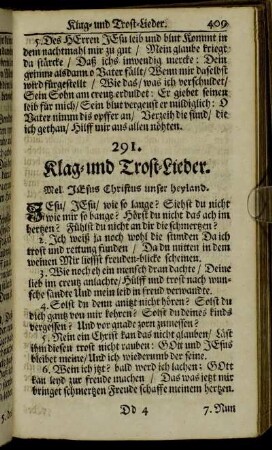 Klag- und Trost-Lieder. 409
5. Des HErren JEsu leib und blut Kommt in
dem nachtmahl mir zu gut / Mein glaube kriegt
du stärcke / Daß ichs inwendig mercke: Dein
grimm alsdann o Vater fällt / Wenn mir daselbst
wird fürgestellt / Wie das / was ich verschuldet /
Dein Sohn am creutz erduldet: Er giebet seinen
leib für mich / Sein blut vergeust er mildiglich: O
Vater nimm dis opffer an / Verzeih die sünd / die
ich gethan / Hilff mir aus allen nöhten.
291.
Klag- und Trost-Lieder.
Mel. JEsus Christus unser heyland.
JEsu / JEsu / wie so lange? Siehst du nicht
wie mir so bange? Hörst du nicht das ach im
hertzen? Fühlst du nicht an dir die schmertzen?
2. Ich weiß ja noch wohl die stunden Da ich
trost und rettung funden / Da du mitten in dem
weinen Mir liessst freuden-blicke scheinen.
3. Wie noch eh ein mensch dran dachte / Deine
lieb im creutz anlachte; Hülff und trost nach wun-
sche sandte Und mein leid in freud verwandte.
4. Solst du denn anitzt nicht hören? Solst du
dich gantz von mir kehren? Solst du deines kinds
vergessen? Und vor gnade zorn zumessen?
5. Mein ein Christ kan das nicht glauben / Läst
ihm diesen trost nicht rauben: GOtt und JEsus
bleibet meine / Und ich wiederumb der seine.
6. Wein ich jtzt? bald werd ich lachen: GOtt
kan leyd zur freude machen / Das was jetzt mir
bringet schmertzen Freude schaffe meinem hertzen.
Dd 4 7. Nun